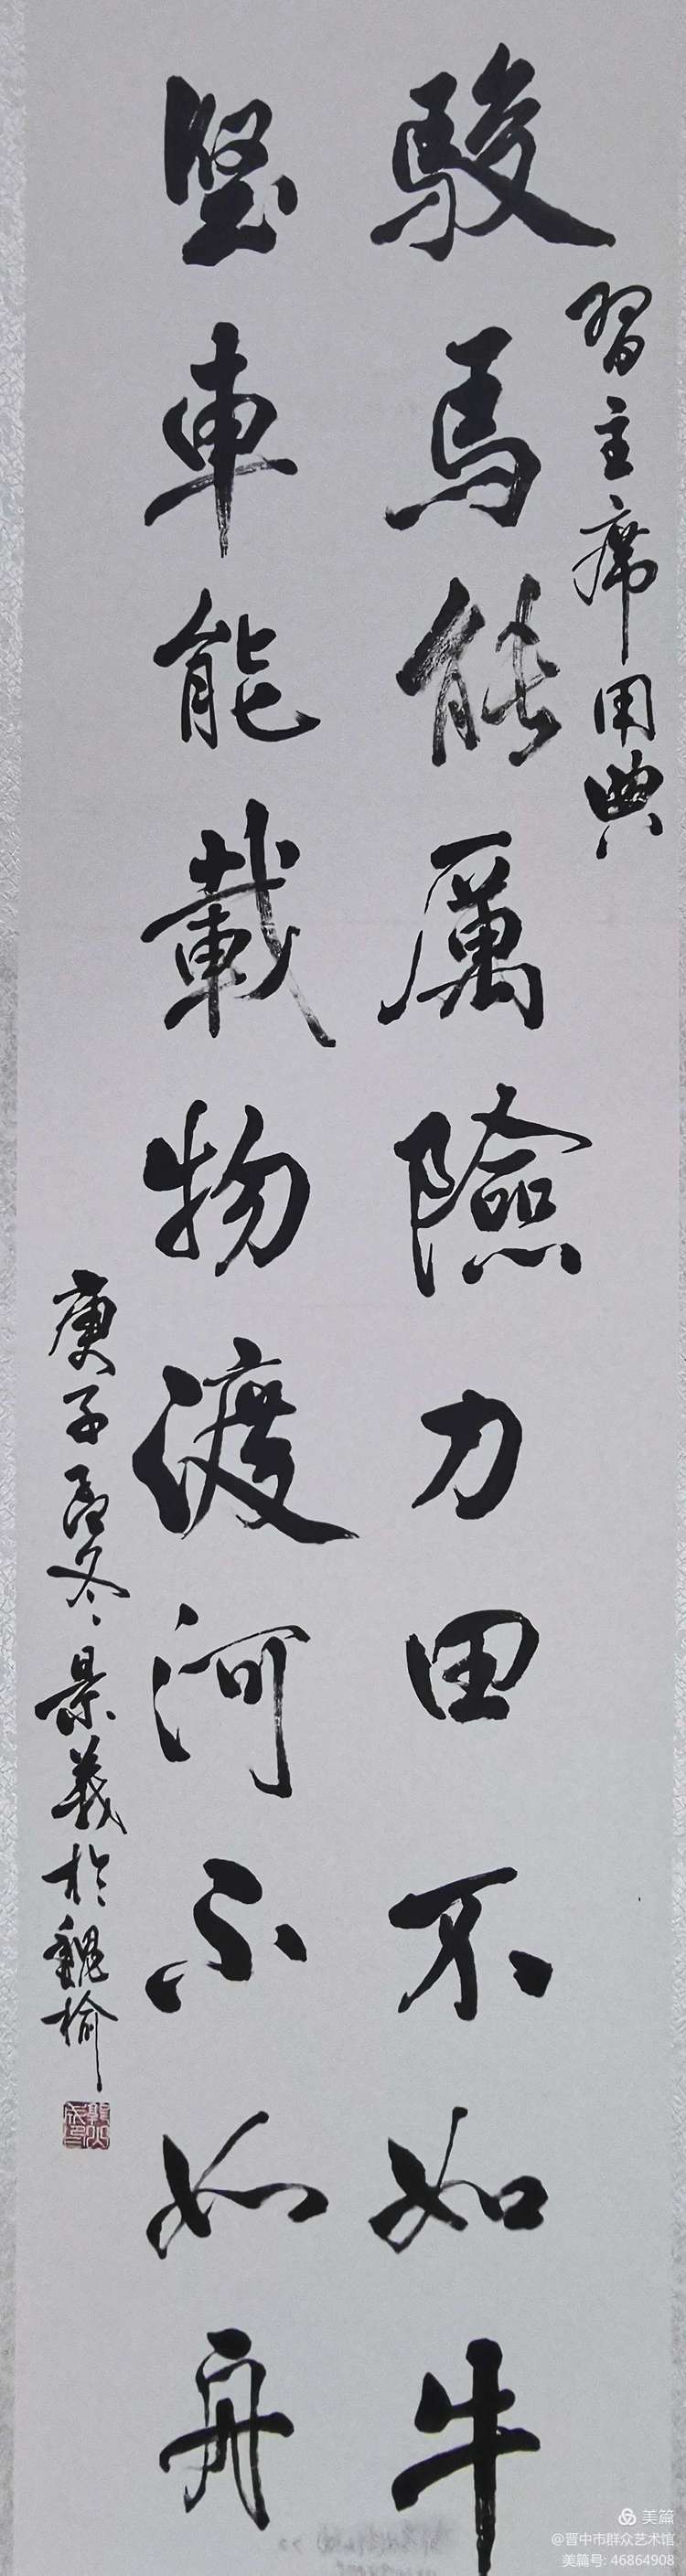 習主席用典
駿馬能厲險力田不如牛
堅車能載物渡河不如舟
庚子孟冬景義於魏榆
美篇
@晋中市群众艺术馆
美篇号: 46864908